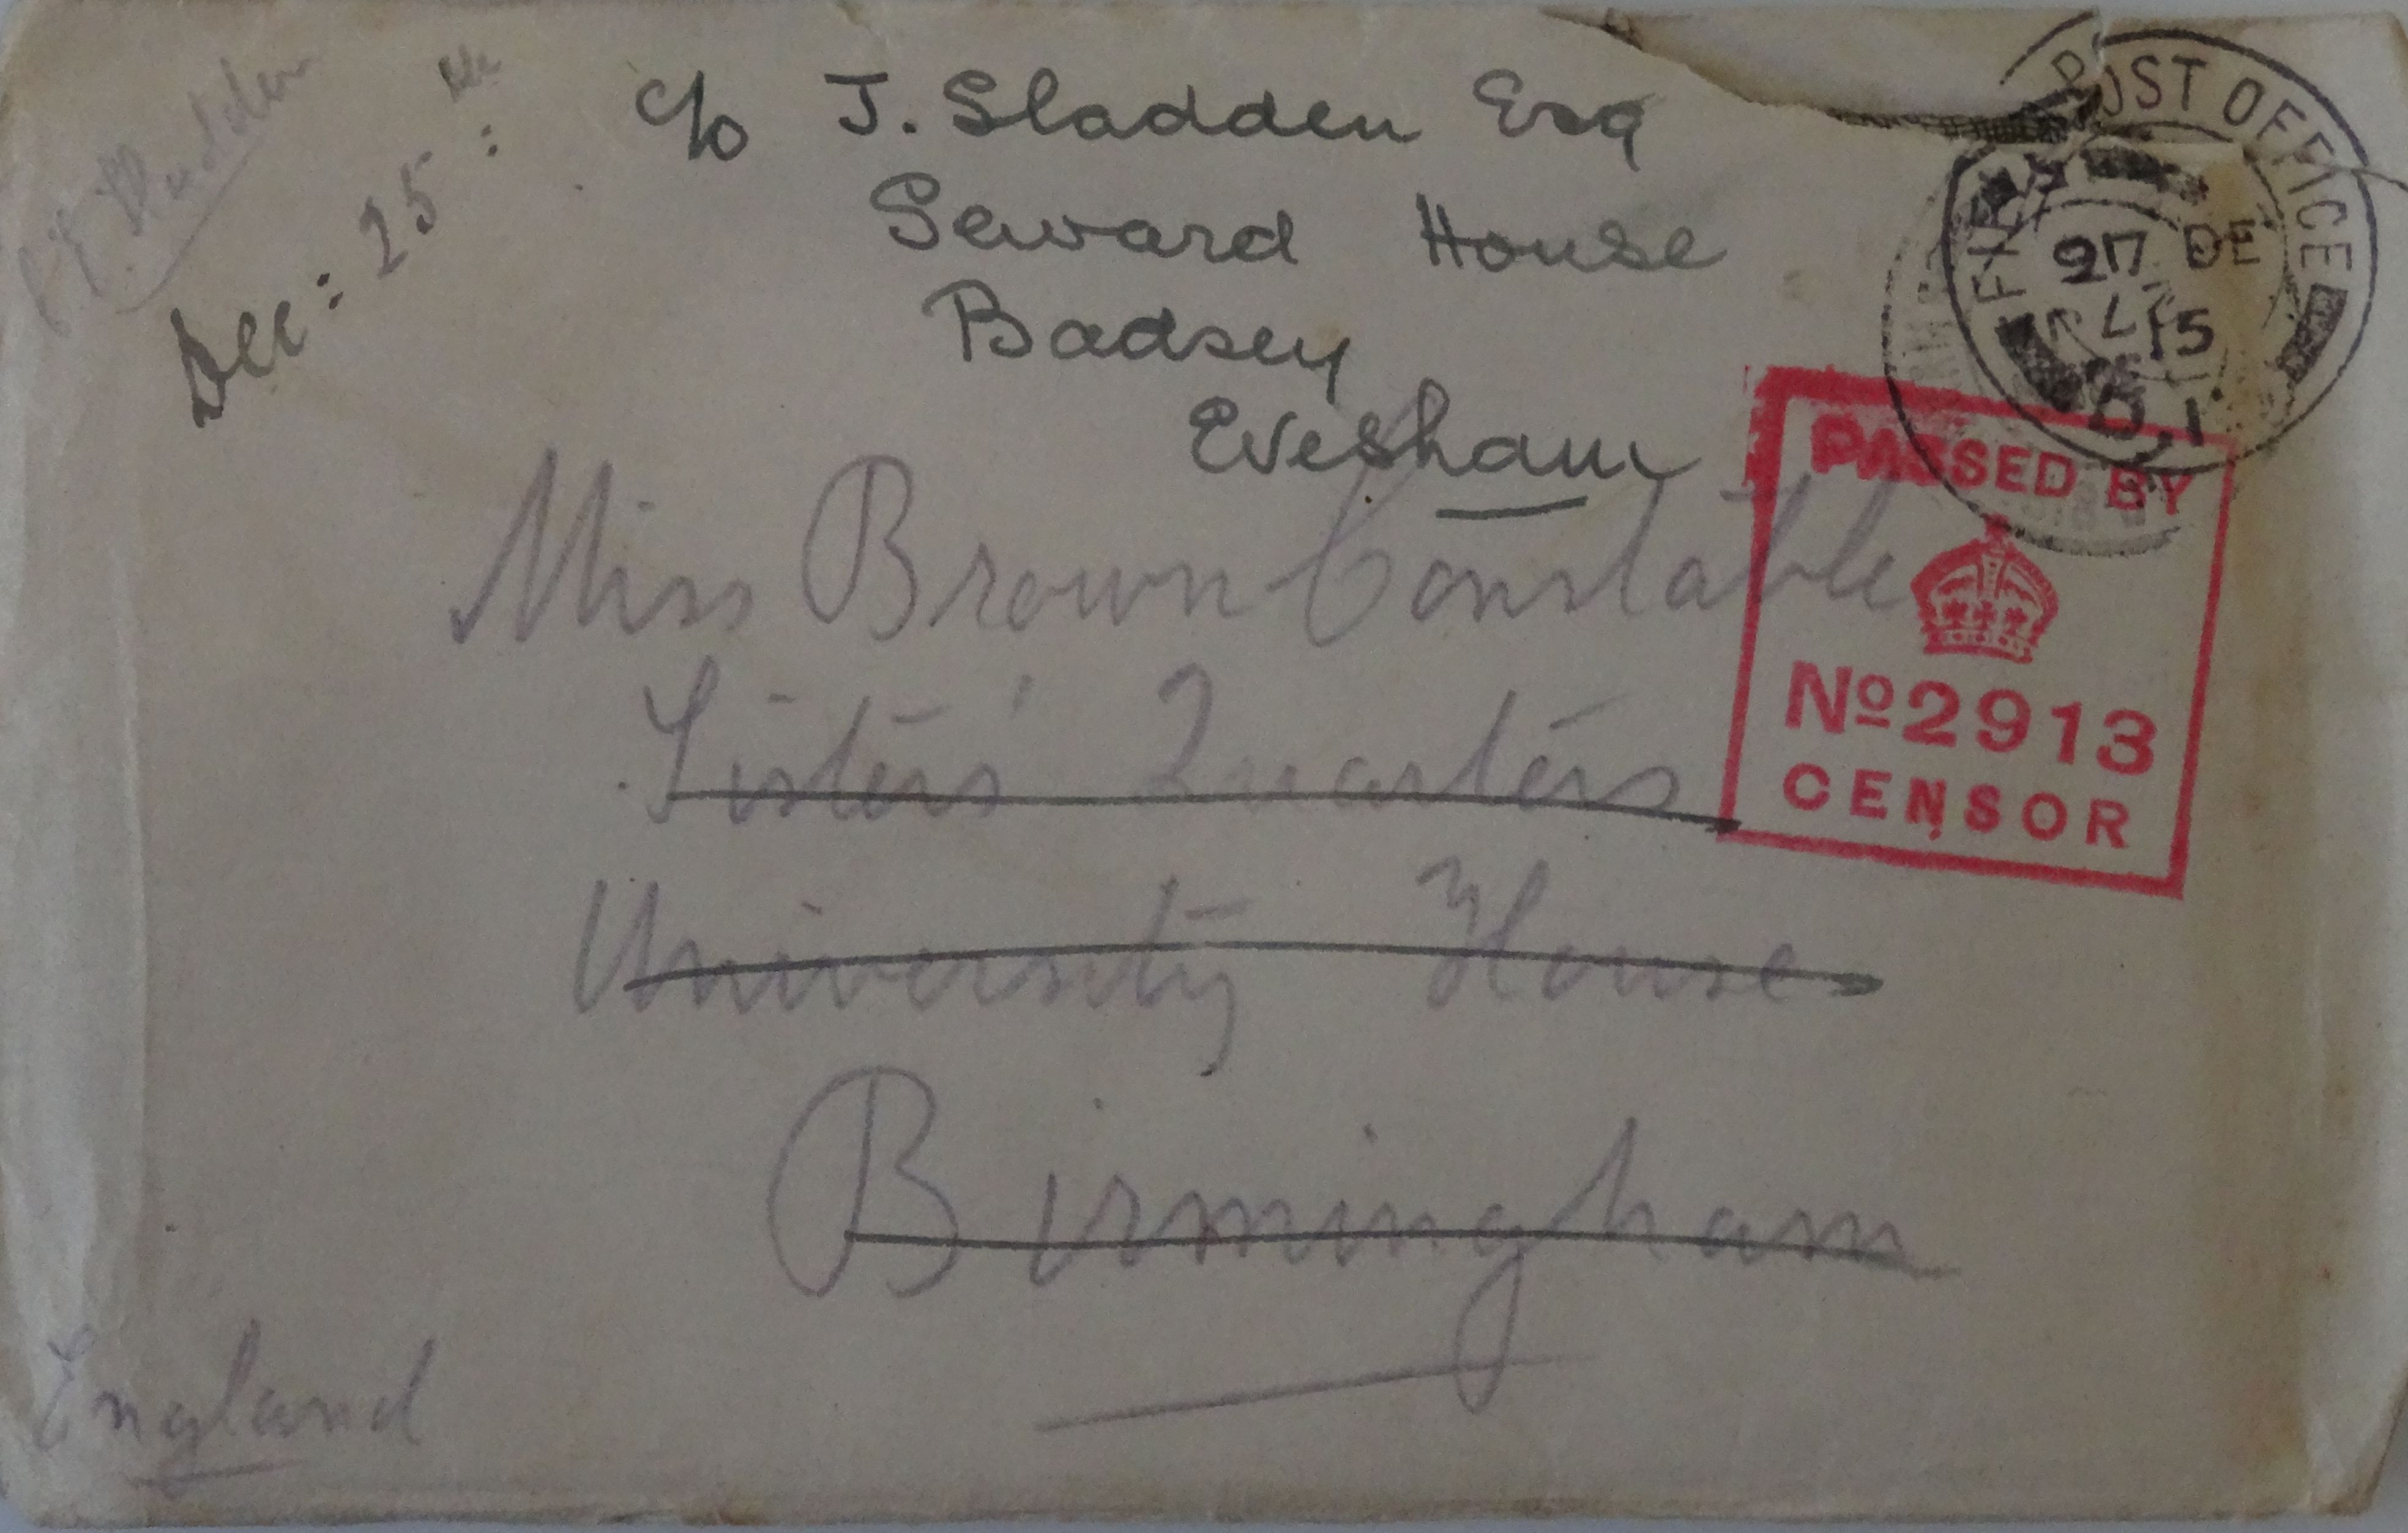 Dec: 25th:
c/o J. Sladden Esq
Seward House
Badsey
Evesham
Miss Brown Constable
Sisters' Quarters
University House
Birmingham
England
POST OFFICE
27 DE
15
D.1
PASSED BY
No 2913
CENSOR